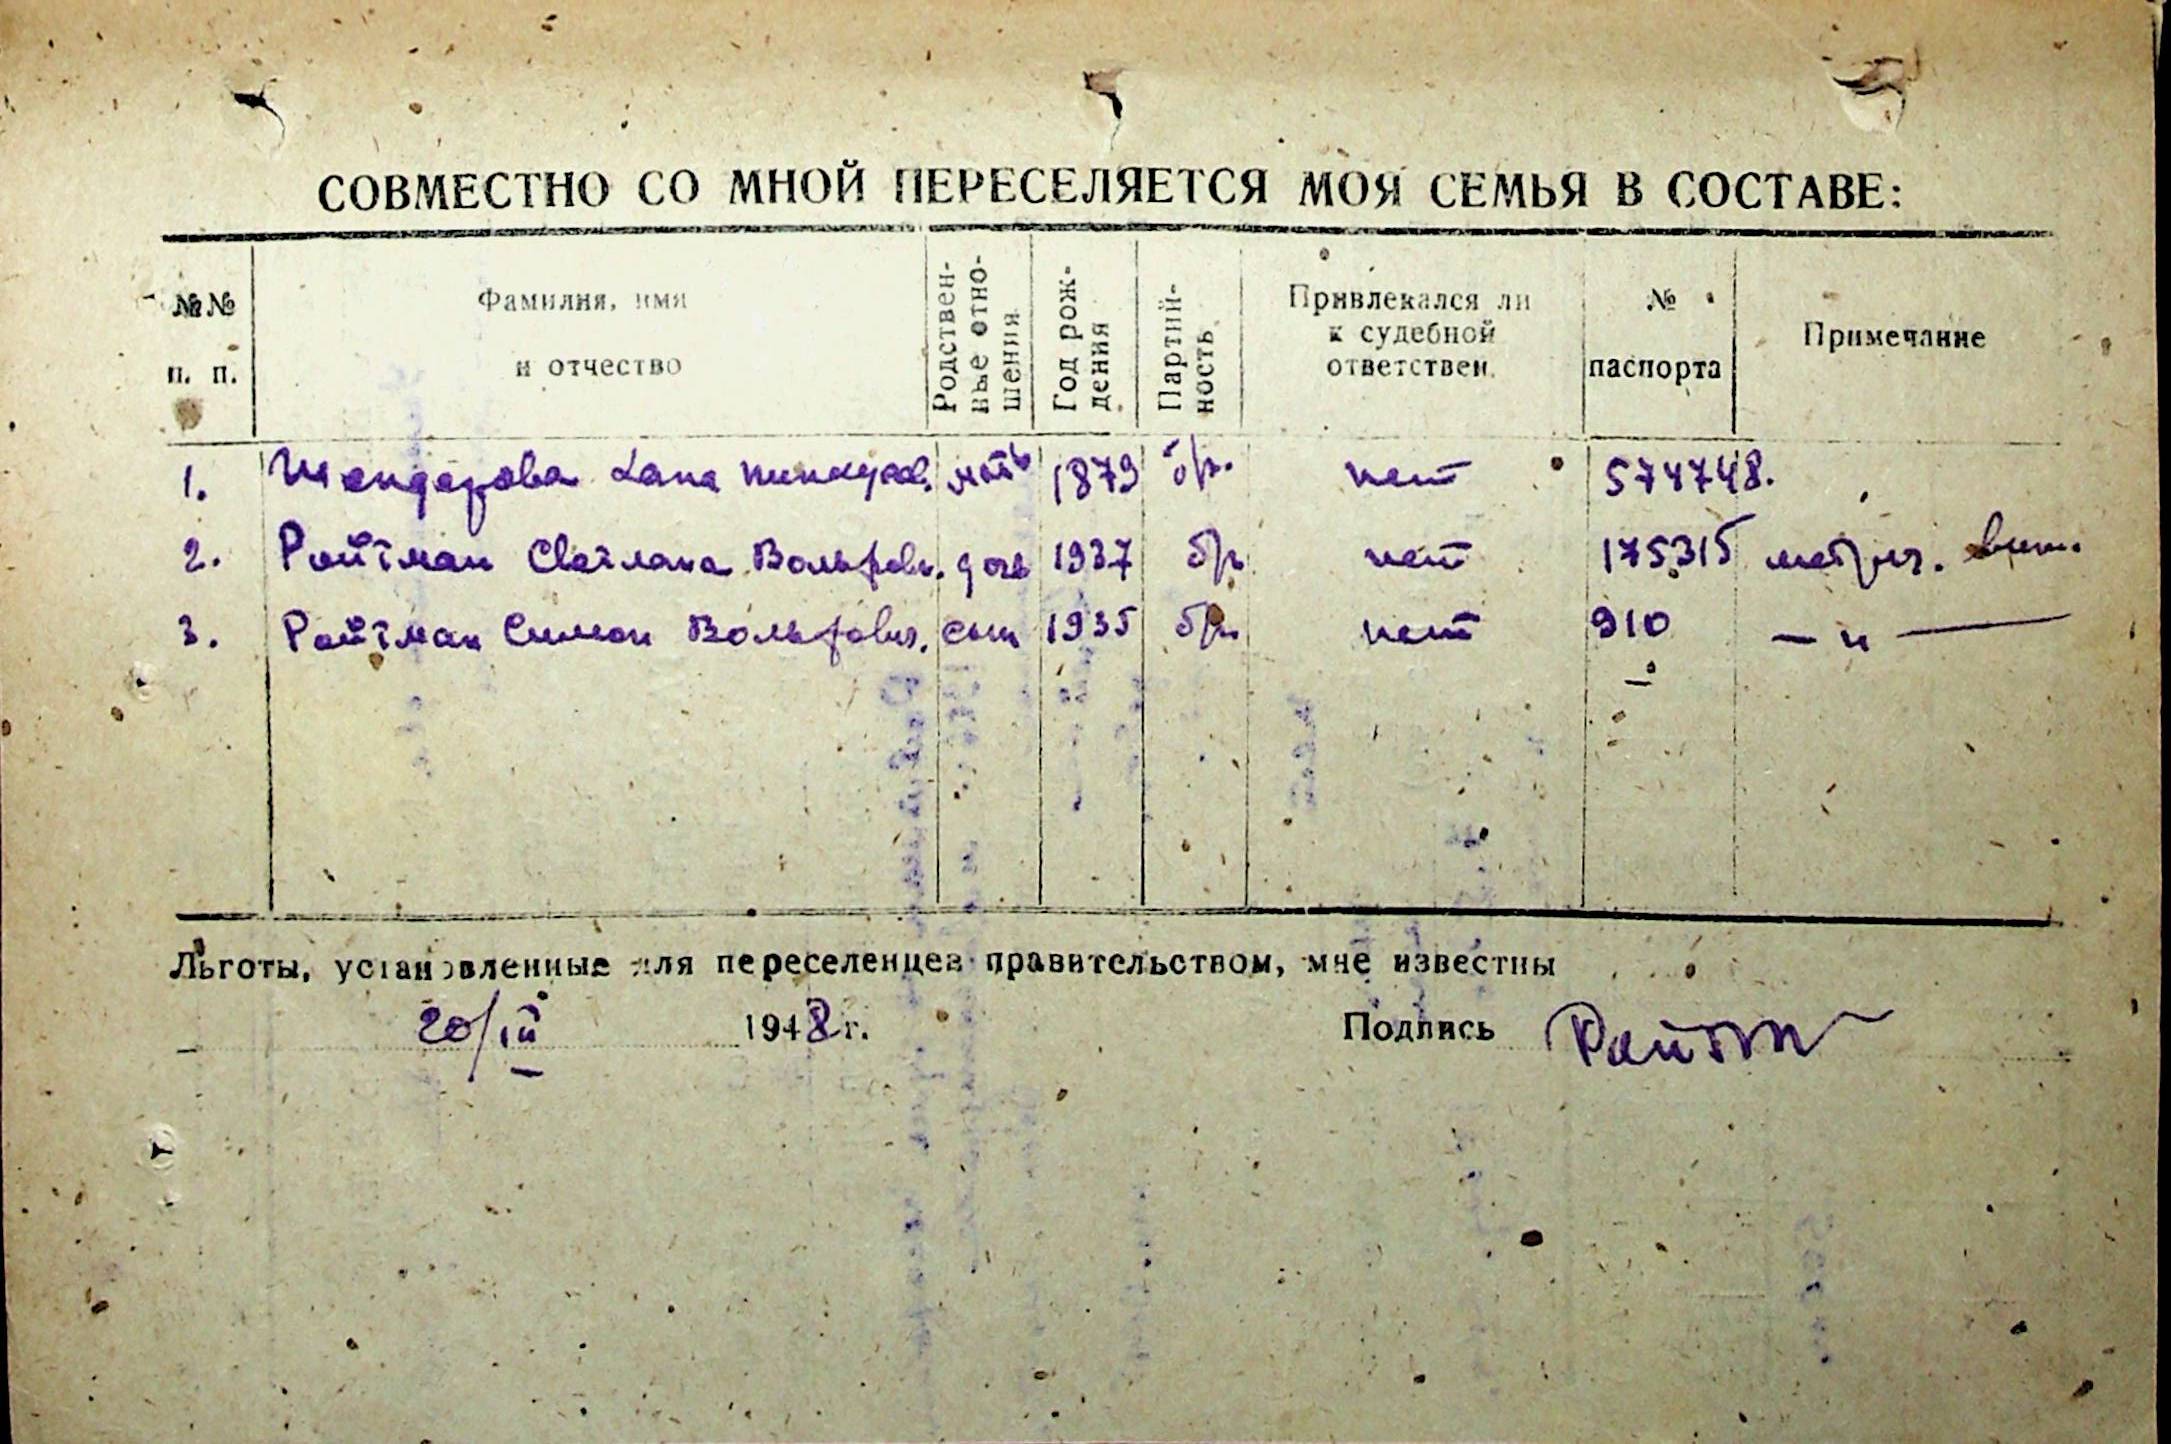 СОВМЕСТНО СО МНОЙ ПЕРЕСЕЛЯЕТСЯ МОЯ СЕМЬЯ В СОСТАВЕ:
№№ п. п.
Фамилия, имя и отчество
Родственные отношения
Год рождения
Партийность
Привлекался ли к судебной ответствен.
№ паспорта
Примечание
1. Шендерова Хана Пинкусов. мать 1879 б/п. нет 574748.
2. Ройтман Светлана Вольфовн. дочь 1937 б/п нет 175315 метрич. вып.
3. Ройтман Симон Вольфович. сын 1935 б/п. нет 910 — и —
Льготы, установленные для переселенцев правительством, мне известны
20/III 1948 г. Подпись Ройтм